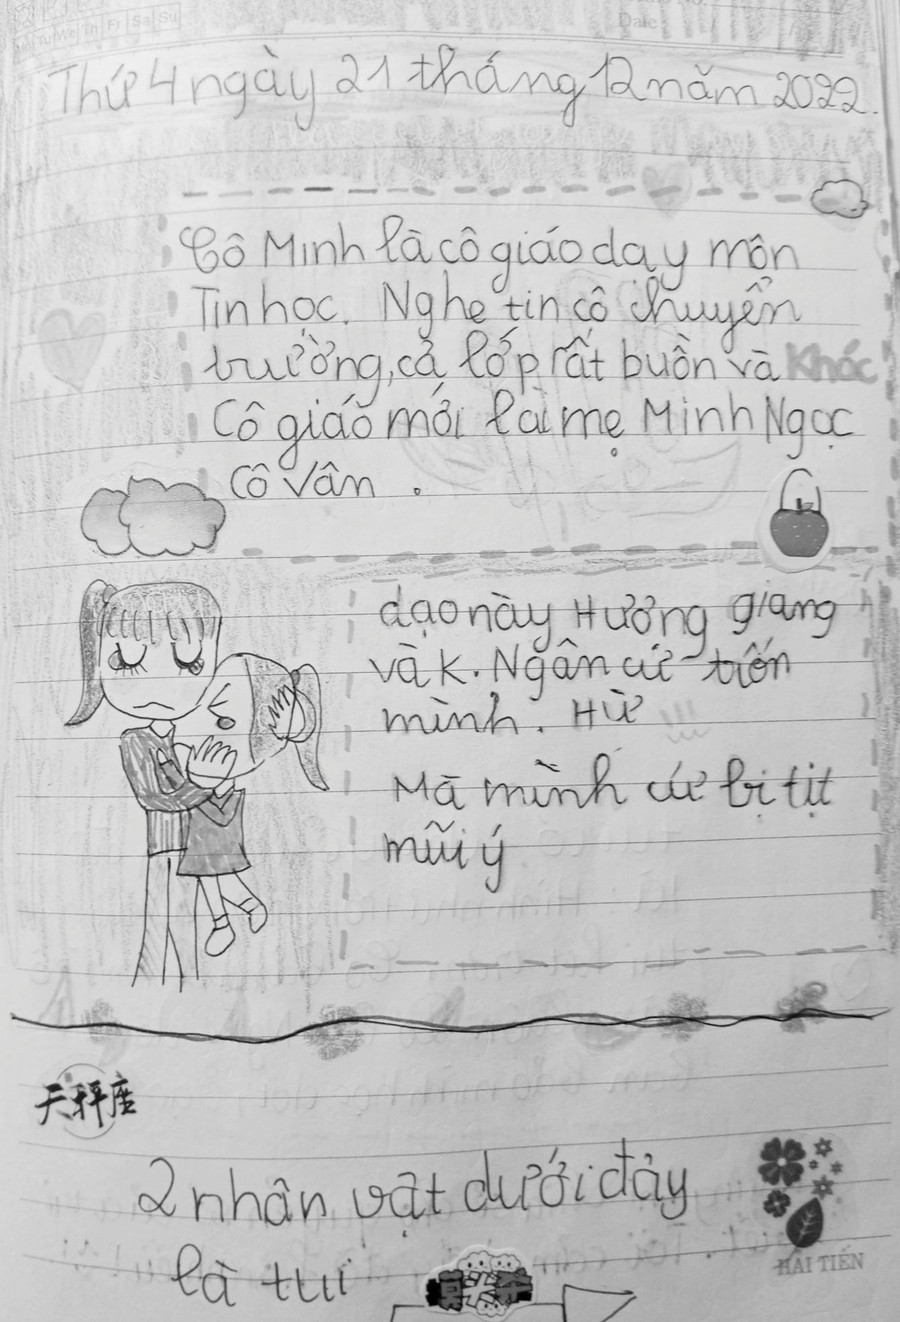 Tu We Th Fr Sa Su
Date
Thứ 4 ngày 21 tháng 12 năm 2022.
Cô Minh là cô giáo dạy môn
Tin học. Nghe tin cô chuyển
trường, cả lớp rất buồn và khóc
Cô giáo mới là mẹ Minh Ngọc
Cô Vân .
dạo này Hương giang
và K. Ngân cứ trốn
mình. Hừ
Mà mình cứ bị tịt
mũi ý
天秤座
2 nhân vật dưới đây
là tui
HẢI TIẾN